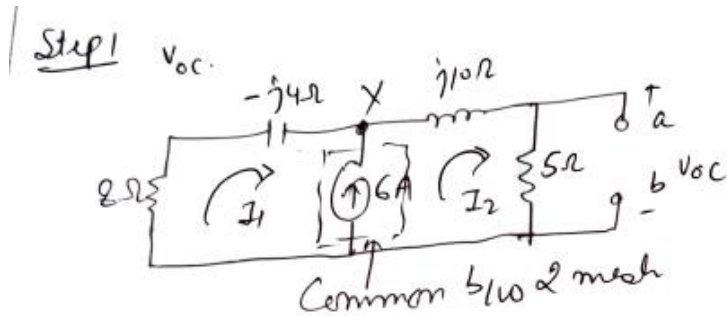 Step 1 Voc.
-j4Ω X j10Ω
8Ω I1 6A I2 5Ω a
b Voc
Common b/w 2 mesh